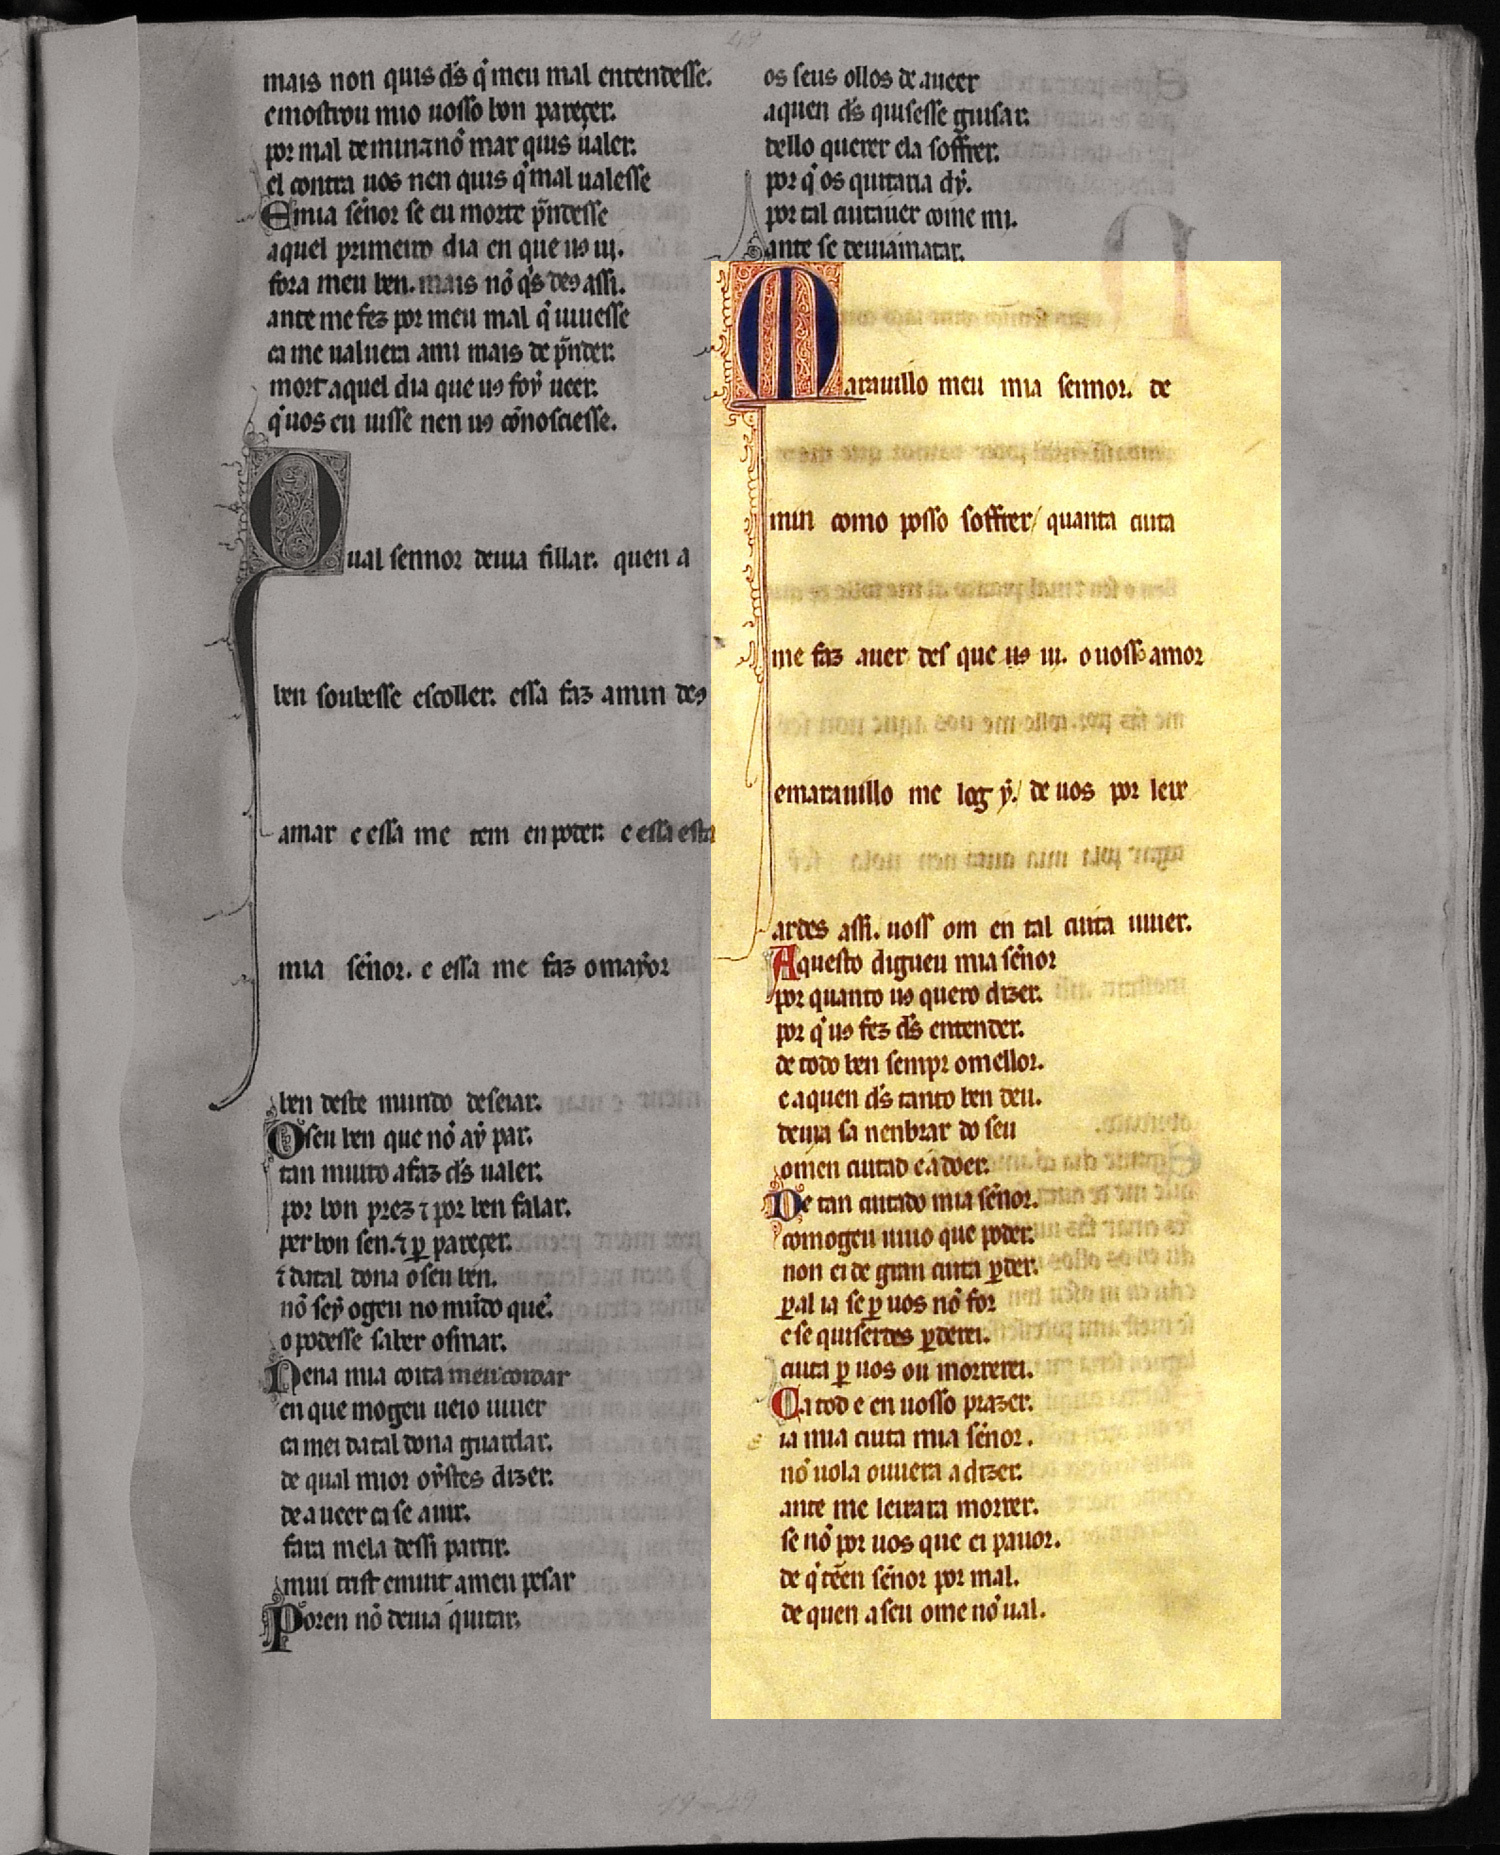 mais non quis d̄s q̇ meu mal entendesse.
emostrou mio uosso bon pareçer.
por mal de min ⁊ nō mar quis ualer.
el contra uos nen quis q̇ mal ualesse
E mia sēnor se eu morte p̄ndesse
aquel primeiro dia en que uꝯ ui.
fora meu ben. mais nō q̇s deꝯ assi.
ante me fez por meu mal q̇ uiuesse
ca me ualuera ami mais de p̄nder.
mort aquel dia que uꝯ foy ueer.
q̇ uos eu uisse nen uꝯ cōnosciesse.
Qual sennor deuia fillar. quen a
ben soubesse escoller. essa faz amin deꝯ
amar e essa me tem en poder. e essa esta
mia sēnor. e essa me faz o mayor
ben deste mundo deseiar.
O seu ben que nō aẏ par.
tan muito a faz d̄s ualer.
por bon prez ⁊ por ben falar.
per bon sen. ⁊ ꝑ pareçer.
⁊ datal dona o seu ben.
nō seẏ ogeu no mūdo quē.
o podesse saber osmar.
Nena mia coita meu coidar
en que mogeu ueio uiuer
ca mei datal dona guardar.
de qual mior oẏstes dizer.
de a ueer ca se a uir.
fara mela dessi partir.
mui trist e muit a meu pesar
Poren nō deuia quitar.
os seus ollos de a ueer
a quen d̄s quisesse guisar.
dello querer ela soffrer.
por q̇ os quitaria dẏ.
por tal cuitauer come mi.
ante se deuiamatar.
Marauillo meu mia sennor. de
min como posso soffrer/ quanta cuita
me faz auer des que uꝯ ui. o uoss amor
e marauillo me log ẏ./ de uos por leix
ardes assi. uoss om en tal cuita uiuer.
Aquesto digueu mia sēnor
por quanto uꝯ quero dizer.
por q̇ uꝯ fez d̄s entender.
de todo ben sempr o mellor.
e aquen d̄s tanto ben deu.
deuia sa nenbrar do seu
omen cuitad e a doer.
De tan cuitado mia sēnor.
comogeu uiuo que poder.
non ei de gran cuita ꝑder.
ꝑ al ia se ꝑ uos nō for
e se quiserdes ꝑderei.
cuita ꝑ uos ou morrerei.
Ca tod e en uosso prazer.
ia mia cuita mia sēnor.
nō uola ouuera a dizer.
ante me leixara morrer.
se nō por uos que ei pauor.
de q̇ tēen sēnor por mal.
de quen a seu ome nō ual.